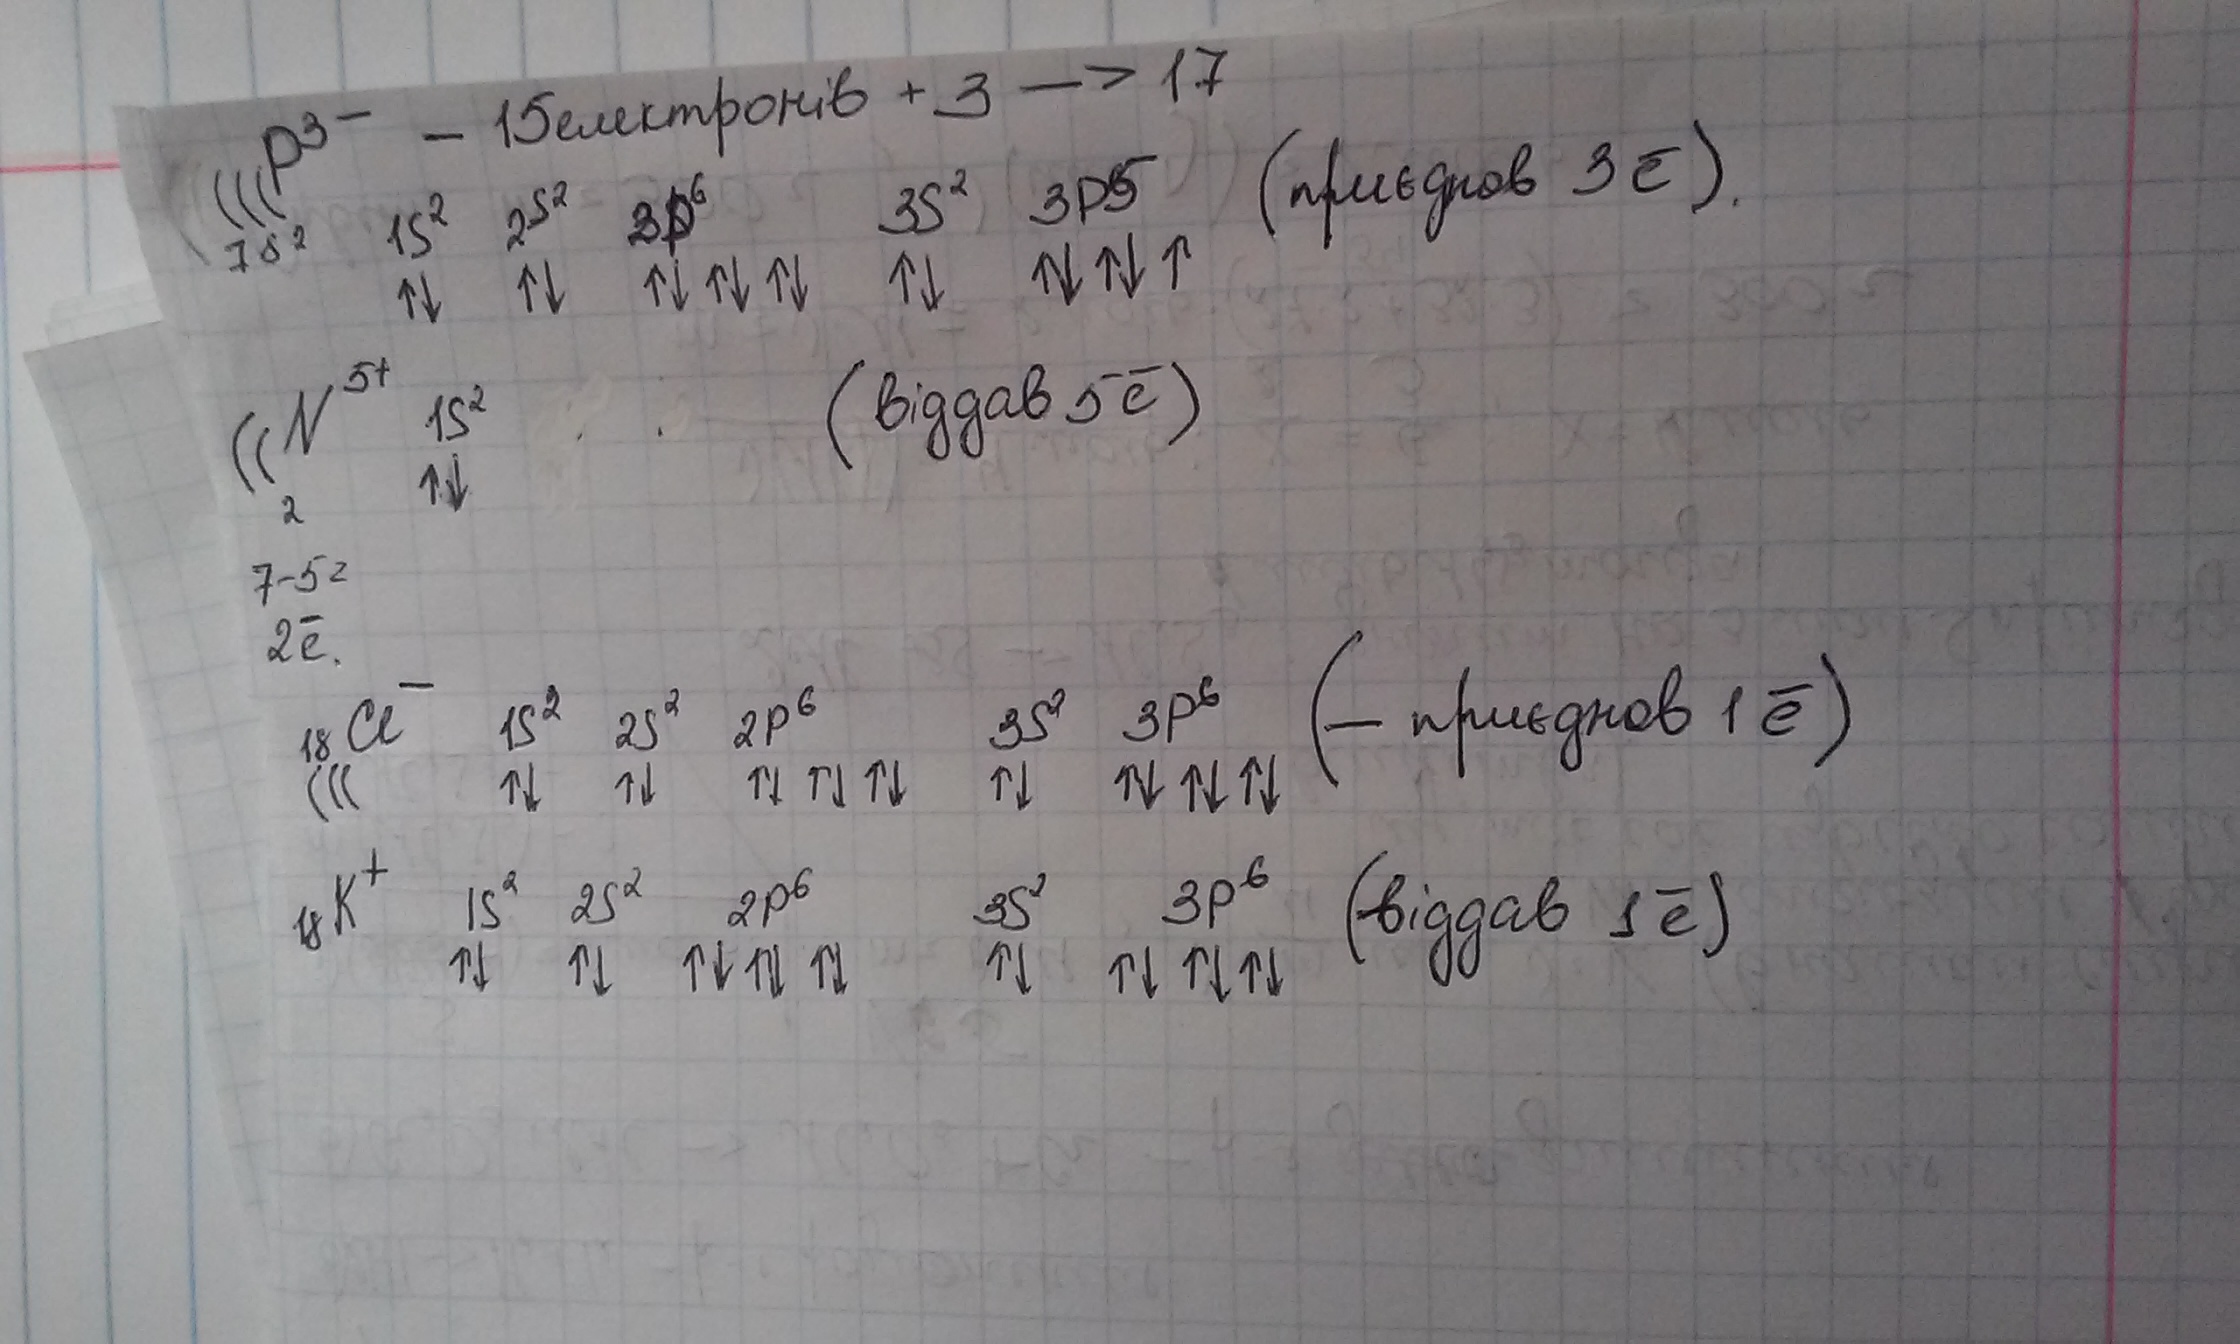 P³⁻ – 15електронів + 3 —> 17
(((
7 8 2 1S² 2S² 2p⁶ 3S² 3P5 (приєднов 3ē).
↑↓ ↑↓ ↑↓ ↑↓ ↑↓ ↑↓ ↑↓ ↑↓ ↑
((N⁵⁺ 1S² (віддав 5ē)
2 ↑↓
7-5=
2ē.
₁₈Cl⁻ 1S² 2S² 2P⁶ 3S² 3P⁶ (– приєднов 1ē)
((( ↑↓ ↑↓ ↑↓ ↑↓ ↑↓ ↑↓ ↑↓ ↑↓ ↑↓
₁₈K⁺ 1S² 2S² 2P⁶ 3S² 3P⁶ (віддав 1ē)
↑↓ ↑↓ ↑↓ ↑↓ ↑↓ ↑↓ ↑↓ ↑↓ ↑↓